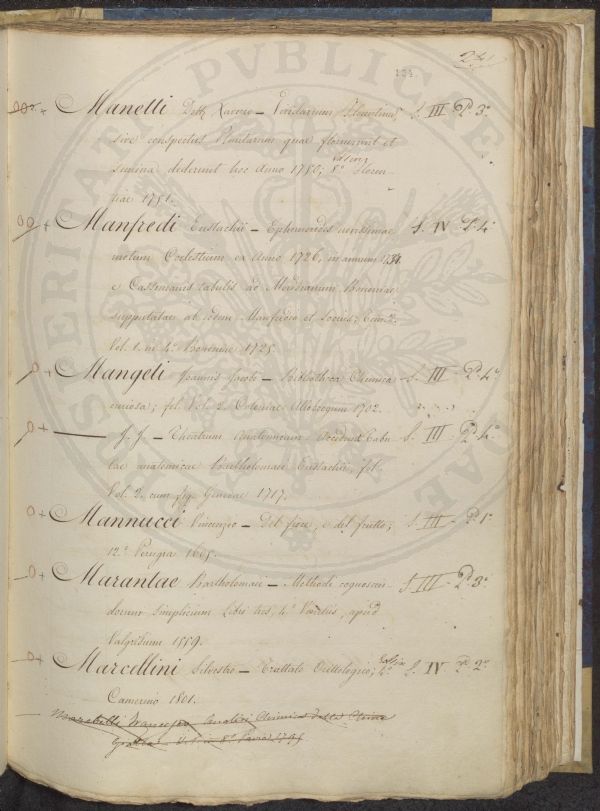 134.
241
Manetti Dott. Xaverio — Viridarium Florentinum S. III P. 3.ª
sive conspectus Plantarum quae floruerunt et
semina dederunt hoc anno 1750; 8.º Floren-
tiae 1751.
Manfredi Eustachii — Ephemerides novissimae S. IV P. 4.ª
motum Coelestium ex Anno 1726, in annum
e Cassinianis tabulis ad Meridianum Bononiae
supputatae ab eodem Manfredio et Sociis; Tom. 2.
Vol. 1. in 4.º Bononiae 1725.
Mangeti Joannis Jacobi — Bibliotheca Chemica S. III P. 4.ª
curiosa; fol. Vol. 2. Coloniae Allobrogum 1702.
— J. J. — Theatrum Anatomicum Accedunt Tabu S. III P. 4.ª
lae anatomicae Bartholomaei Eustachii, fol.
Vol. 2. cum fig. Genevae 1717.
Mannucci Vincenzio — Del fiore, e del frutto; S. III P. 1.ª
12.º Perugia 1605.
Marantae Bartholomaei — Methodi cognoscen S. III P. 3.ª
dorum simplicium Libri tres, 4.º Venetiis, apud
Valgrisium 1559.
Marcellini Silvestro — Trattato Orittologico; 4.º S. IV P. 2.ª
Camerino 1801.
Marabelli Francesco Analisi Chimica della China
1795
PUBLICAE